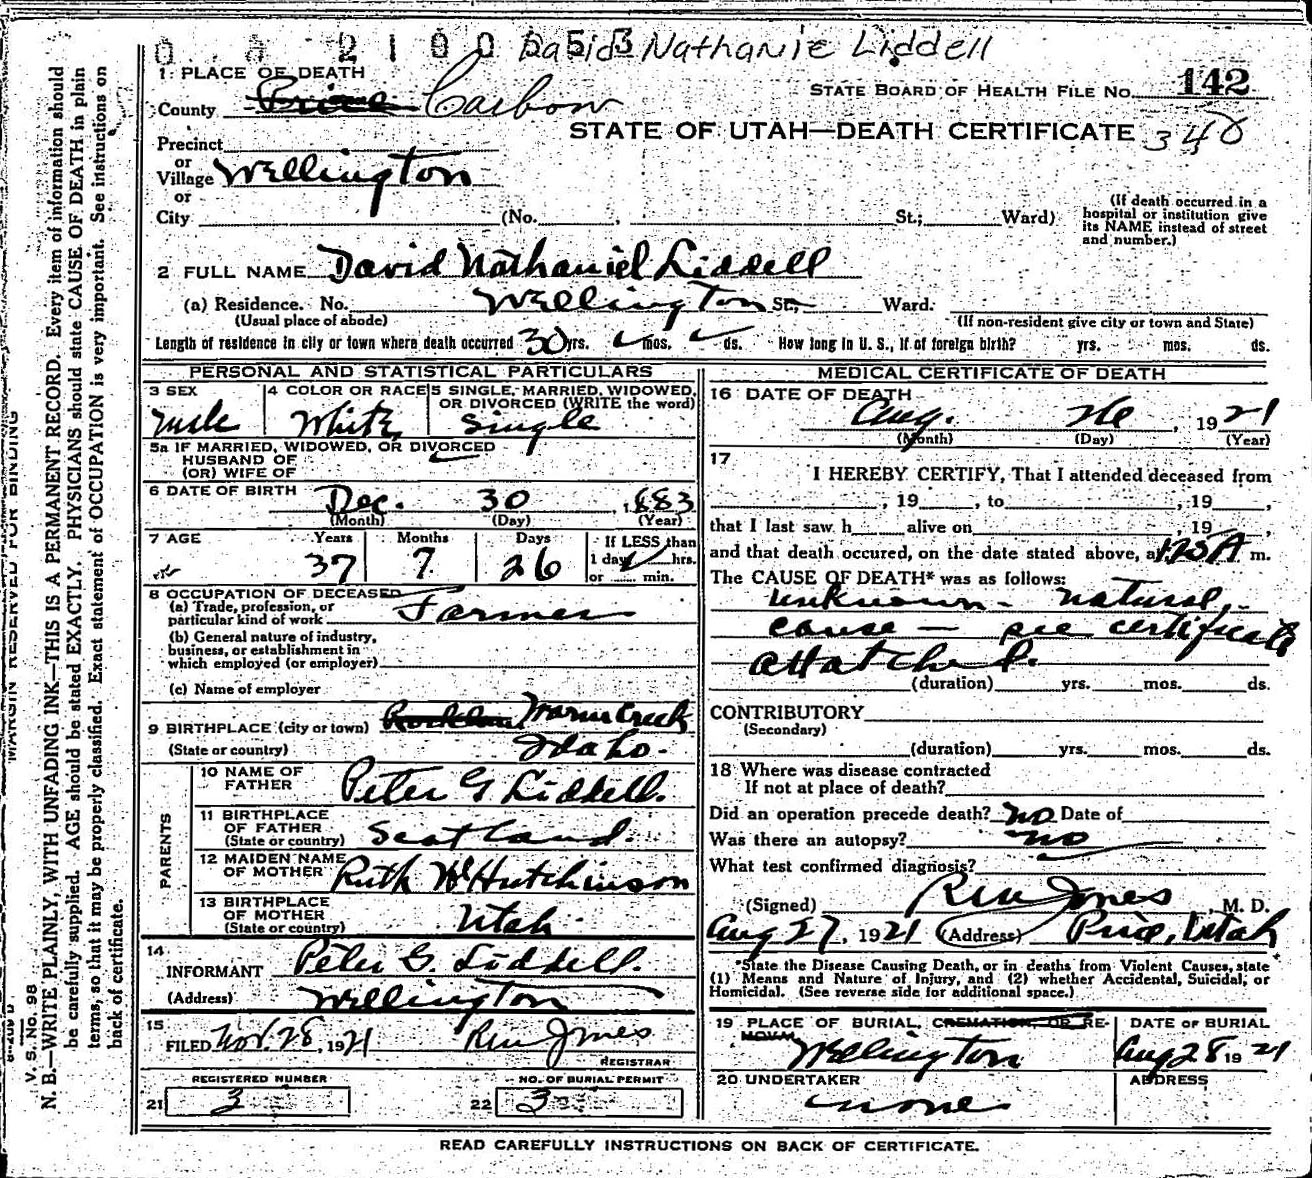 0 8 2 1 0 0 0 5 3 David Nathanie Liddell
1 PLACE OF DEATH
STATE BOARD OF HEALTH FILE No. 142
County Price Carbon
STATE OF UTAH—DEATH CERTIFICATE 340
Precinct
or
Village Wellington
or
City (No. , St.; Ward)
(If death occurred in a
hospital or institution give
its NAME instead of street
and number.)
2 FULL NAME David Nathaniel Liddell
(a) Residence. No. Wellington St., Ward.
(Usual place of abode) (If non-resident give city or town and State)
Length of residence in city or town where death occurred 30 yrs. mos. ds. How long in U. S., if of foreign birth? yrs. mos. ds.
PERSONAL AND STATISTICAL PARTICULARS
3 SEX Male
4 COLOR OR RACE White
5 SINGLE, MARRIED, WIDOWED,
OR DIVORCED (WRITE the word)
Single
5a IF MARRIED, WIDOWED, OR DIVORCED
HUSBAND OF
(OR) WIFE OF
6 DATE OF BIRTH Dec. 30, 1883
(Month) (Day) (Year)
7 AGE Years Months Days If LESS than
37 7 26 1 day hrs.
or min.
8 OCCUPATION OF DECEASED
(a) Trade, profession, or
particular kind of work Farmer
(b) General nature of industry,
business, or establishment in
which employed (or employer)
(c) Name of employer
9 BIRTHPLACE (city or town) Warm Creek
(State or country) Idaho.
PARENTS
10 NAME OF
FATHER Peter G Liddell.
11 BIRTHPLACE
OF FATHER
(State or country) Scotland.
12 MAIDEN NAME
OF MOTHER Ruth W Hutchinson
13 BIRTHPLACE
OF MOTHER
(State or country) Utah
14
INFORMANT Peter G. Liddell.
(Address) Wellington
15
FILED Nov. 28, 1921 Jones
REGISTRAR
REGISTERED NUMBER NO. OF BURIAL PERMIT
21 3 22 3
MEDICAL CERTIFICATE OF DEATH
16 DATE OF DEATH
Aug. 26, 1921
(Month) (Day) (Year)
17
I HEREBY CERTIFY, That I attended deceased from
, 19 , to , 19 ,
that I last saw h alive on , 19 ,
and that death occured, on the date stated above, at 1.20 A m.
The CAUSE OF DEATH* was as follows:
unknown - natural,
cause — see certificate
attatched.
(duration) yrs. mos. ds.
CONTRIBUTORY
(Secondary)
(duration) yrs. mos. ds.
18 Where was disease contracted
If not at place of death?
Did an operation precede death? No Date of
Was there an autopsy? no
What test confirmed diagnosis?
(Signed) Jones, M. D.
Aug 27, 1921 (Address) Price, Utah
*State the Disease Causing Death, or in deaths from Violent Causes, state
(1) Means and Nature of Injury, and (2) whether Accidental, Suicidal, or
Homicidal. (See reverse side for additional space.)
19 PLACE OF BURIAL, CREMATION, OR RE-
MOVAL
Wellington
DATE OF BURIAL
Aug 28 1921
20 UNDERTAKER
none
ADDRESS
READ CAREFULLY INSTRUCTIONS ON BACK OF CERTIFICATE.
MARGIN RESERVED FOR BINDING
V. S. No. 98
N. B.—WRITE PLAINLY, WITH UNFADING INK—THIS IS A PERMANENT RECORD. Every item of information should
be carefully supplied. AGE should be stated EXACTLY. PHYSICIANS should state CAUSE OF DEATH in plain
terms, so that it may be properly classified. Exact statement of OCCUPATION is very important. See instructions on
back of certificate.